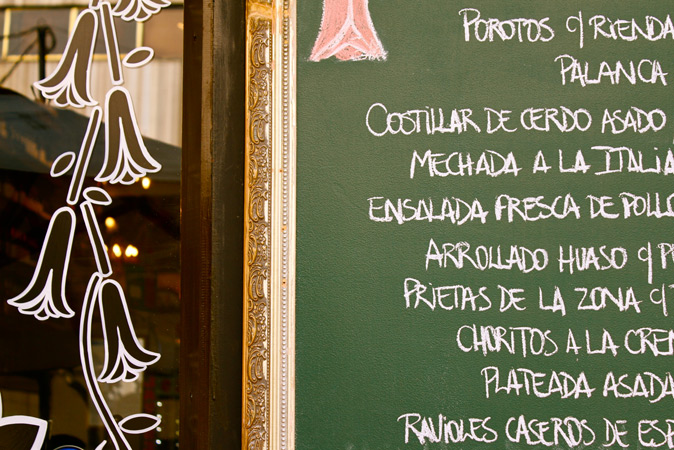 POROTOS C/ RIENDA
PALANCA
COSTILLAR DE CERDO ASADO
MECHADA A LA ITALIA
ENSALADA FRESCA DE POLLO
ARROLLADO HUASO C/ P
PRIETAS DE LA ZONA C/
CHORITOS A LA CREM
PLATEADA ASADA
RAVIOLES CASEROS DE ESP